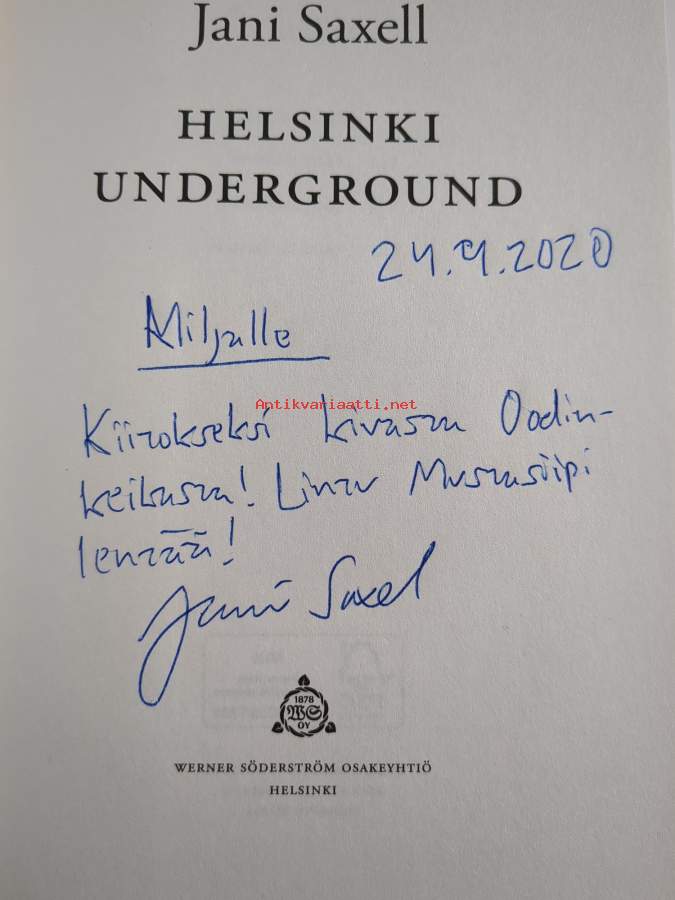 Jani Saxell
HELSINKI
UNDERGROUND
24.9.2020
Miljalle
Antikvariaatti.net
Kiitokseksi kivasta Oodin-
keikasta! Lintu Mustasiipi
lentää!
Jani Saxell
1878
WS
OY
WERNER SÖDERSTRÖM OSAKEYHTIÖ
HELSINKI